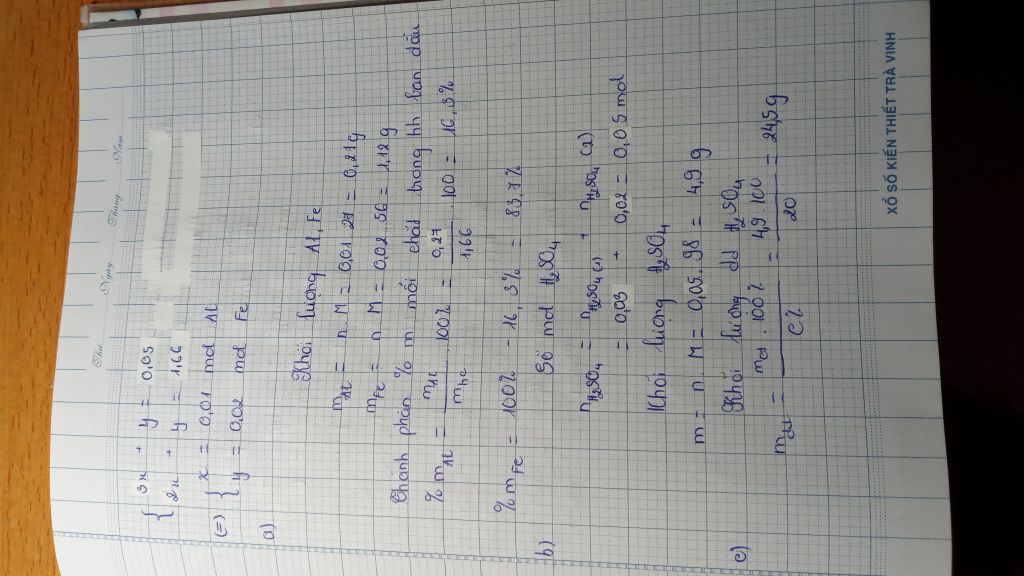 Thứ Ngày Tháng Năm
{ 3x + y = 0,05
2x + y = 1,66
(=) { x = 0,01 mol Al
y = 0,02 mol Fe
a) Khối lượng Al, Fe
mAl = n M = 0,01 27 = 0,27g
mFe = n M = 0,02 . 56 = 1,12 g
Thành phần % m mỗi chất trong hh ban đầu
% mAl = mAl / mhc . 100% = 0,27 / 1,66 . 100 = 16,3%
% mFe = 100% - 16,3% = 83.7%
b) Số mol H2SO4
nH2SO4 = nH2SO4 (1) + nH2SO4 (2)
= 0,03 + 0,02 = 0,05 mol
Khối lượng H2SO4
m = n . M = 0,05 . 98 = 4,9 g
c) Khối lượng dd H2SO4
mdd = mct . 100% / C% = 4,9 . 100 / 20 = 24,5 g
XỔ SỐ KIẾN THIẾT TRÀ VINH